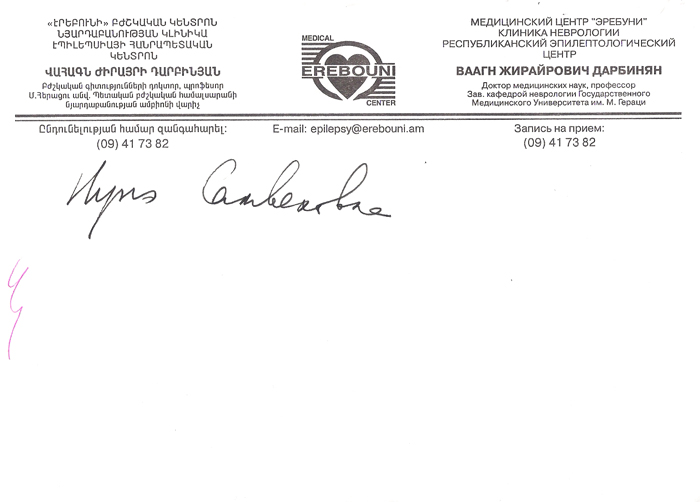 «ԷՐԵԲՈՒՆԻ» ԲԺՇԿԱԿԱՆ ԿԵՆՏՐՈՆ
ՆՅԱՐԴԱԲԱՆՈՒԹՅԱՆ ԿԼԻՆԻԿԱ
ԷՊԻԼԵՊՍԻԱՅԻ ՀԱՆՐԱՊԵՏԱԿԱՆ
ԿԵՆՏՐՈՆ
ՎԱՀԱԳՆ ԺԻՐԱՅՐԻ ԴԱՐԲԻՆՅԱՆ
Բժշկական գիտությունների դոկտոր, պրոֆեսոր
Մ.Հերացու անվ. Պետական բժշկական համալսարանի
նյարդաբանության ամբիոնի վարիչ
MEDICAL
EREBOUNI
CENTER
МЕДИЦИНСКИЙ ЦЕНТР "ЭРЕБУНИ"
КЛИНИКА НЕВРОЛОГИИ
РЕСПУБЛИКАНСКИЙ ЭПИЛЕПТОЛОГИЧЕСКИЙ
ЦЕНТР
ВААГН ЖИРАЙРОВИЧ ДАРБИНЯН
Доктор медицинских наук, профессор
Зав. кафедрой неврологии Государственного
Медицинского Университета им. М. Гераци
Ընդունելության համար զանգահարել:
(09) 41 73 82
E-mail: epilepsy@erebouni.am
Запись на прием:
(09) 41 73 82
Самвеловна